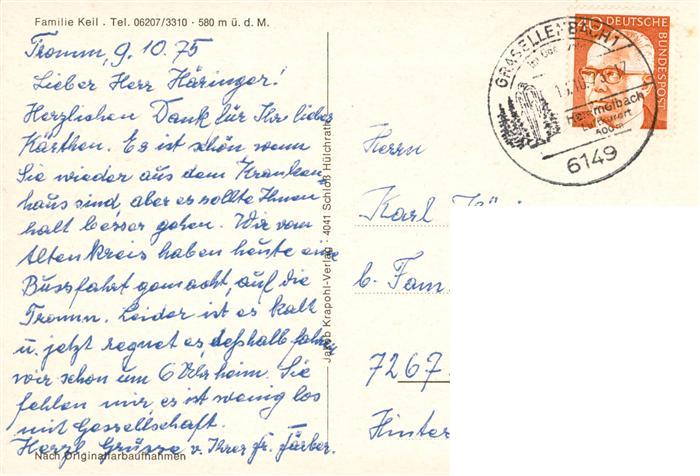 Familie Keil . Tel. 06207/3310 · 580 m ü. d. M.
Tromm, 9.10.75
Lieber Herr Häringer!
Herzlichen Dank für Ihr liebes
Kärthen. Es ist schön wenn
Sie wieder aus dem Kranken-
haus sind, aber es sollte Ihnen
halt besser gehen. Wir vom
Altenkreis haben heute eine
Bussfahrt gemacht, auf die
Tromm. Leider ist es kalt
u. jetzt regnet es, deßhalb fahren
wir schon um 6 Uhr heim. Sie
fehlen mir, es ist wenig los
mit Gessellschaft.
Herzl Grüsse v. Ihrer Fr. Färber.
Nach Originalfarbaufnahmen
Jakob Krapohl-Verlag · 4041 Schloß Hülchrath
GRASELLENBACH 1
Hammelbach
Luftkurort
400m
6149
40 DEUTSCHE
BUNDESPOST
Herrn
Karl
b. Fam.
7267
Hinter